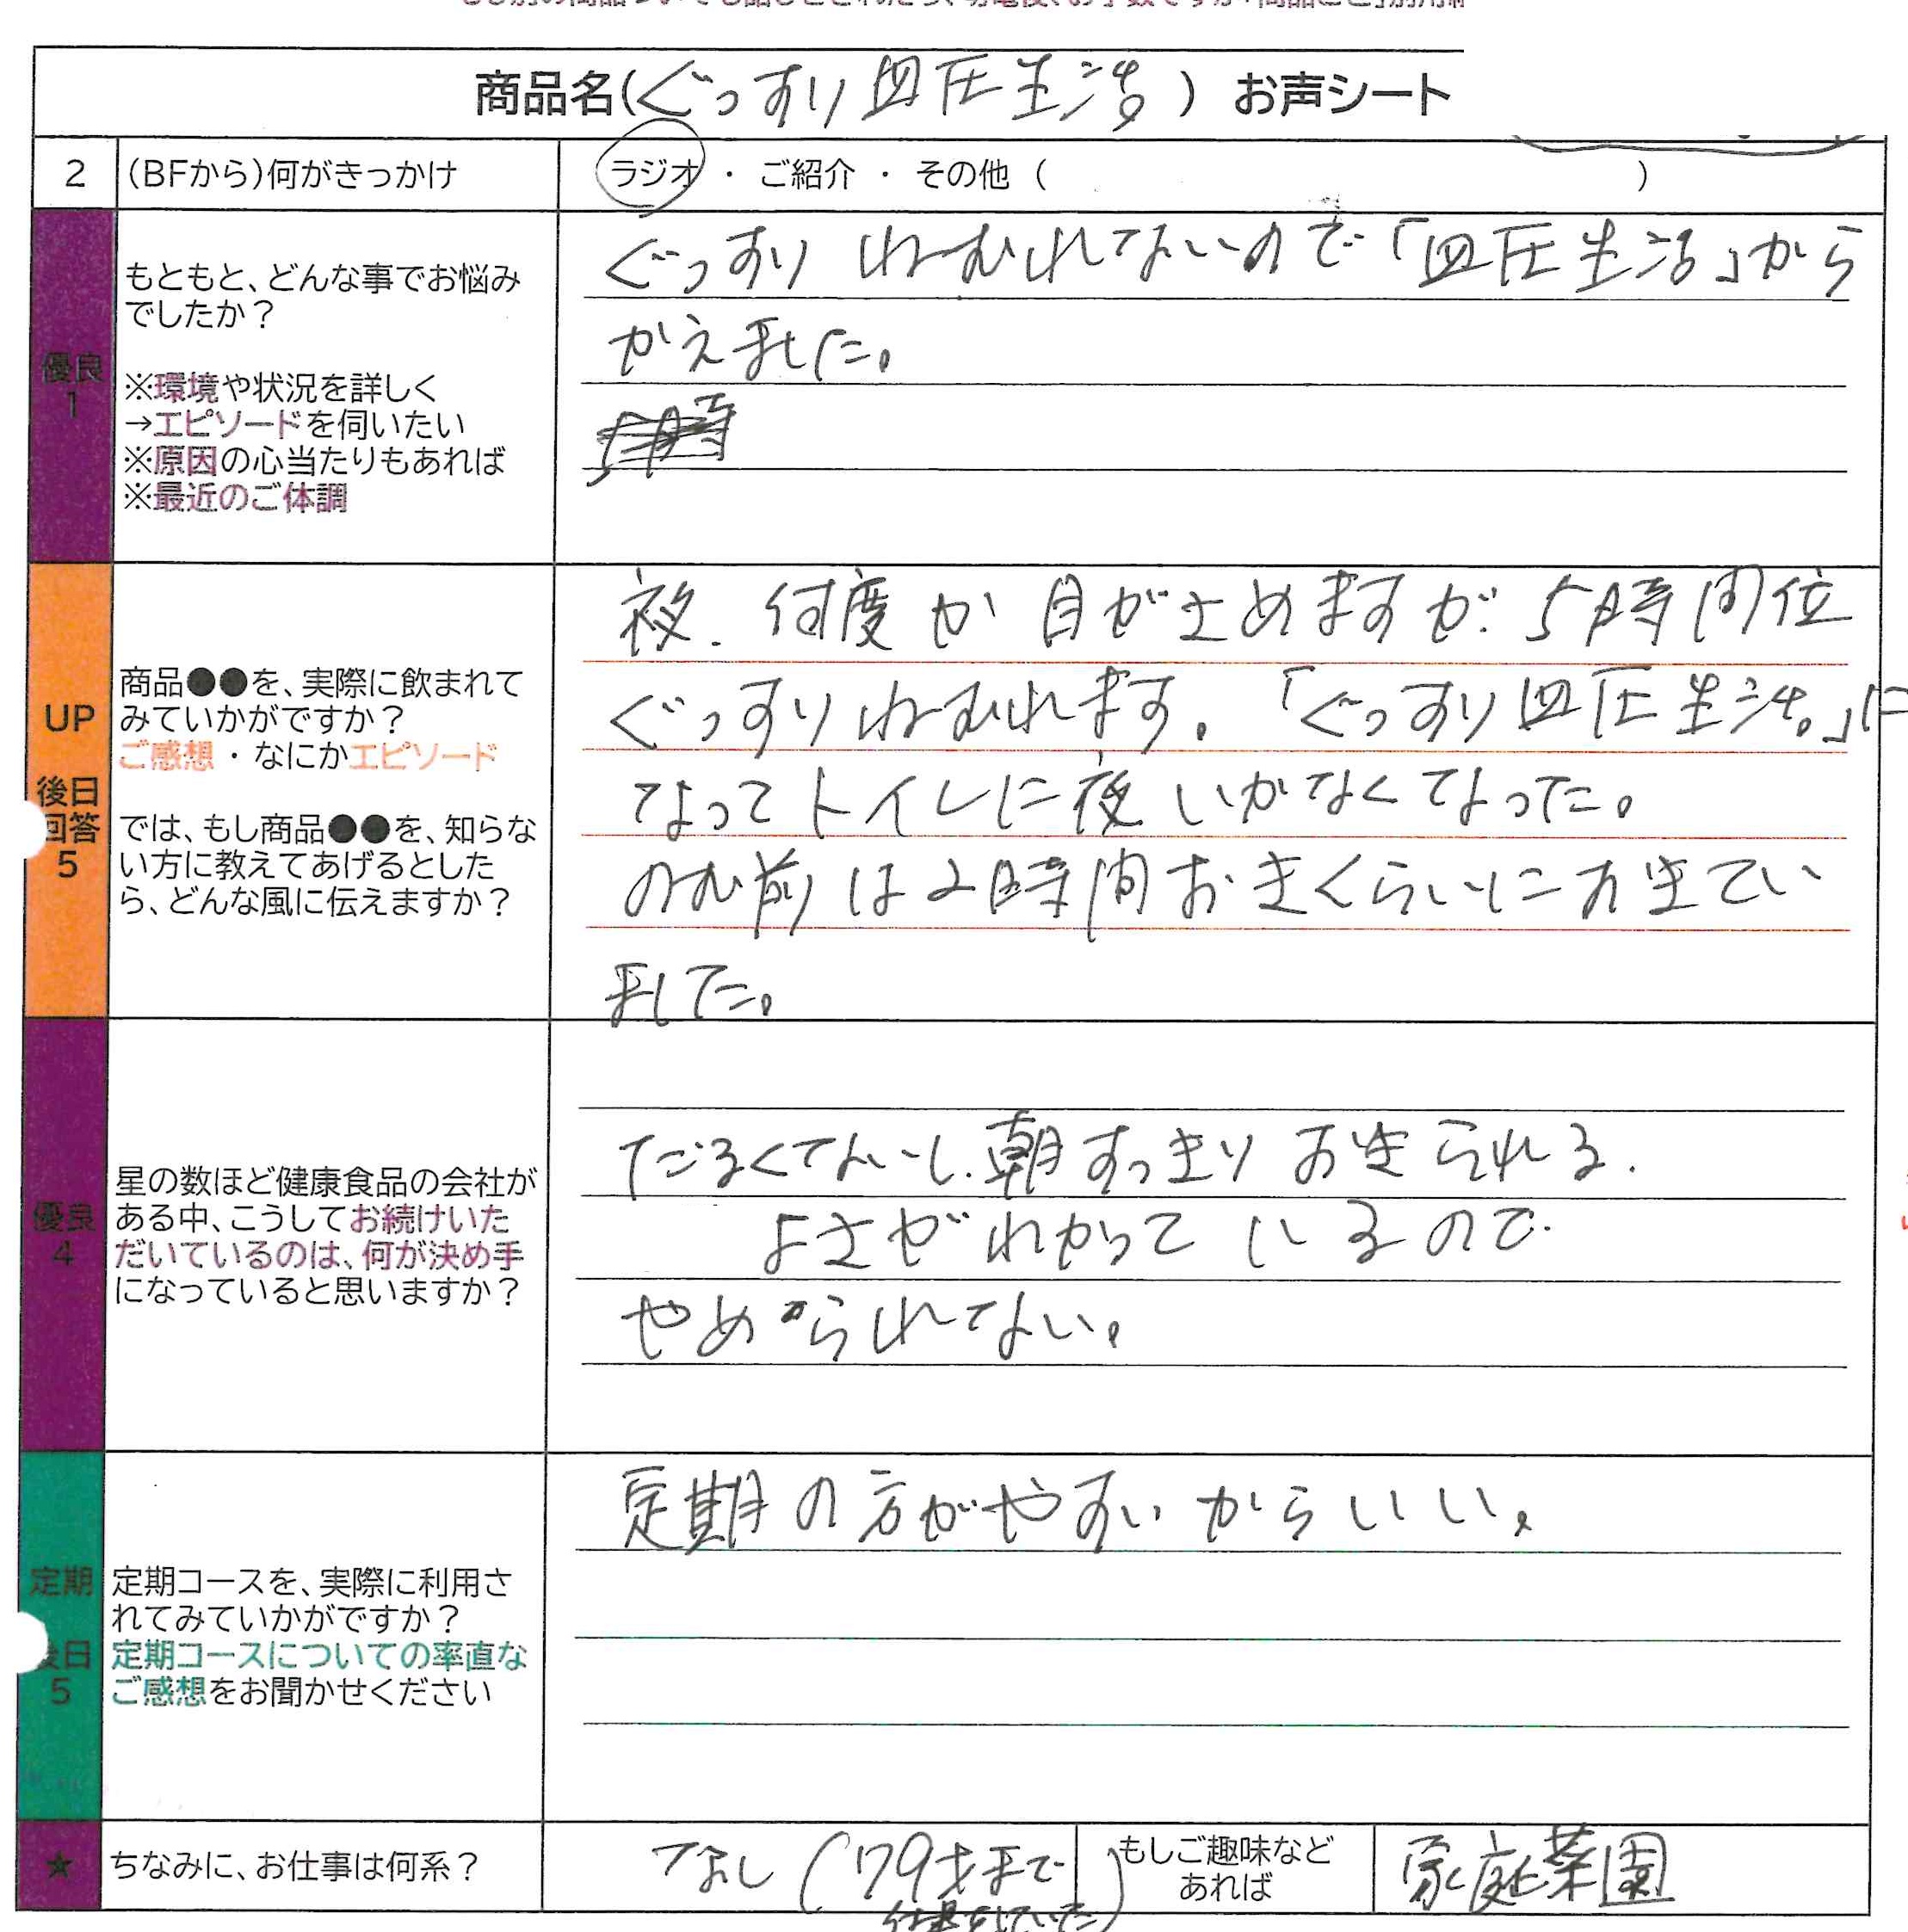 商品名(ぐっすり血圧生活) お声シート
2 (BFから)何がきっかけ ラジオ ・ ご紹介 ・ その他 ( )
優良
1
もともと、どんな事でお悩み
でしたか？
※環境や状況を詳しく
→エピソードを伺いたい
※原因の心当たりもあれば
※最近のご体調
ぐっすりねむれてないので「血圧生活」から
かえました。
UP
後日
回答
5
商品●●を、実際に飲まれて
みていかがですか？
ご感想・なにかエピソード
では、もし商品●●を、知らな
い方に教えてあげるとした
ら、どんな風に伝えますか？
夜、何度か目がさめますが、5時間位
ぐっすりねむれます。「ぐっすり血圧生活。」に
なってトイレに夜いかなくなった。
のむ前は2時間おきくらいにお生てい
ました。
優良
4
星の数ほど健康食品の会社が
ある中、こうしてお続けいた
だいているのは、何が決め手
になっていると思いますか？
だるくないし、朝すっきりお生られる.
よさがわかっているので
やめられない。
定期
後日
5
定期コースを、実際に利用さ
れてみていかがですか？
定期コースについての率直な
ご感想をお聞かせください
定期の方がやすいからいい。
★ ちなみに、お仕事は何系？ なし(79才まで
仕事をしていた)
もしご趣味など
あれば
家庭菜園